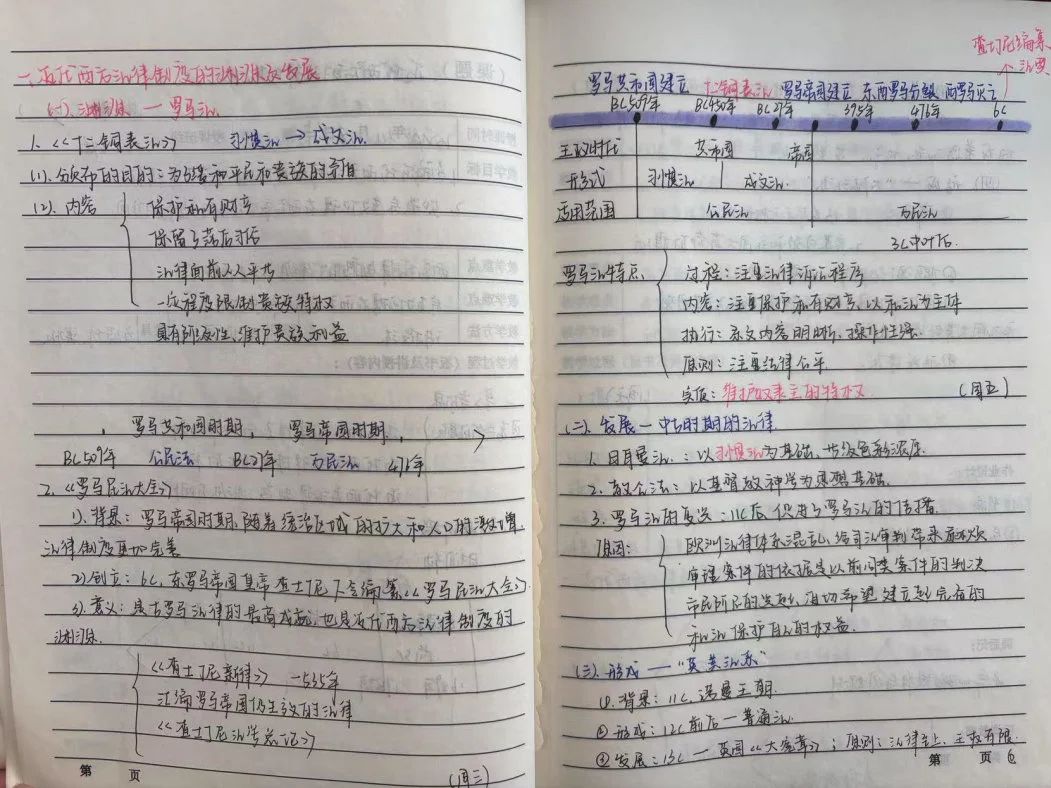 一、近代西方法律制度的渊源及发展
(一). 渊源 — 罗马法.
1. 《十二铜表法》 习惯法 → 成文法.
(1). 颁布的目的：为了缓和平民和贵族的矛盾
(2). 内容
保护私有财产
保留了落后习俗
法律面前人人平等
一定程度限制贵族特权
具有阶级性，维护贵族利益
罗马共和国时期， 罗马帝国时期，
BC509年 公民法 BC27年 万民法 476年
2. 《罗马民法大全》
1). 背景：罗马帝国时期，随着统治区域的扩大和人口的激增
法律制度更加完善
2) 创立：6C，东罗马帝国皇帝查士丁尼下令编纂《罗马民法大全》
3). 意义：是古罗马法律的最高成就，也是近代西方法律制度的
渊源.
《查士丁尼新律》 —535年
汇编罗马帝国仍生效的法律
《查士丁尼法学总论》
第 页
(周三)
查士丁尼编纂
法典
罗马共和国建立 十二铜表法 罗马帝国建立 东西罗马分裂 西罗马灭亡
BC509年 BC450年 BC27年 395年 476年 6C
王政时代 共和国 帝国
形式 习惯法 成文法
适用范围 公民法 万民法
3C中叶后.
罗马法特点
过程：注重法律诉讼程序
内容：注重保护私有财产，以私法为主体
执行：条文内容明晰，操作性强.
原则：注重法律公平.
实质：维护奴隶主的特权 (周五)
(二). 发展 — 中古时期的法律
1. 日耳曼法：以习惯法为基础，等级色彩浓厚.
2. 教会法：以基督教神学为思想基础.
3. 罗马法的复兴：11C后，促进了罗马法的传播.
原因：
欧洲法律体系混乱，给司法审判带来麻烦
审理案件的依据是以前同类案件的判决
市民阶层的兴起，迫切希望建立起完有的
私法保护自己的权益.
(三). 形成 — “英美法系”
①. 背景：11C，诺曼王朝.
② 形成：12C前后 — 普通法.
③ 发展：13C — 英国《大宪章》；原则：法律至上，王权有限.
第 页